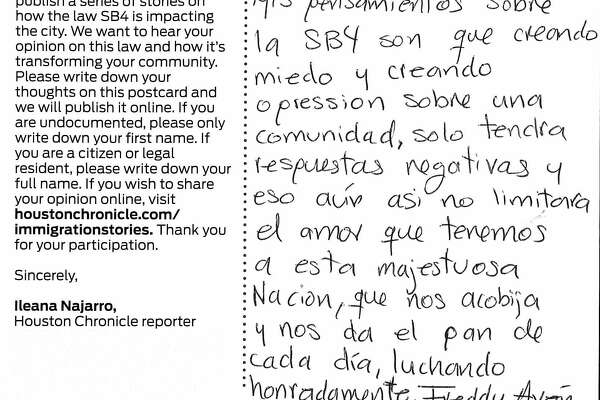 publish a series of stories on
how the law SB4 is impacting
the city. We want to hear your
opinion on this law and how it's
transforming your community.
Please write down your
thoughts on this postcard and
we will publish it online. If you
are undocumented, please only
write down your first name. If
you are a citizen or legal
resident, please write down your
full name. If you wish to share
your opinion online, visit
houstonchronicle.com/
immigrationstories. Thank you
for your participation.
Sincerely,
Ileana Najarro,
Houston Chronicle reporter
pensamientos sobre
la SB4 son que creando
miedo y creando
opression sobre una
comunidad, solo tendra
respuestas negativas y
eso aún asi no limitara
el amor que tenemos
a esta majestuosa
Nación, que nos acobija
y nos da el pan de
cada día, luchando
honradamente. Freddy